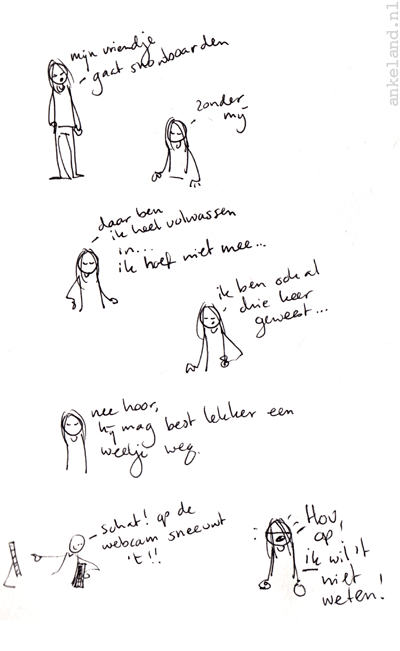 ankeland.nl
mijn vriendje
gaat snowboarden
zonder
mij
daar ben
ik heel volwassen
in...
ik hoef niet mee...
ik ben ook al
drie keer
geweest...
nee hoor,
hij mag best lekker een
weekje weg.
schat! op de
webcam sneeuwt
't!!
Hou
op,
ik wil 't
niet
weten!